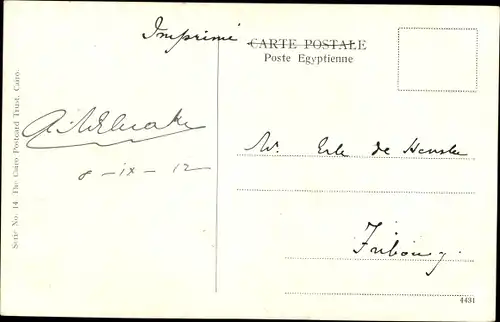 Imprimé
CARTE POSTALE
Poste Egyptienne
8-IX-12
de
Fribourg
Serie No. 14 The Cairo Postcard Trust, Cairo.
4431